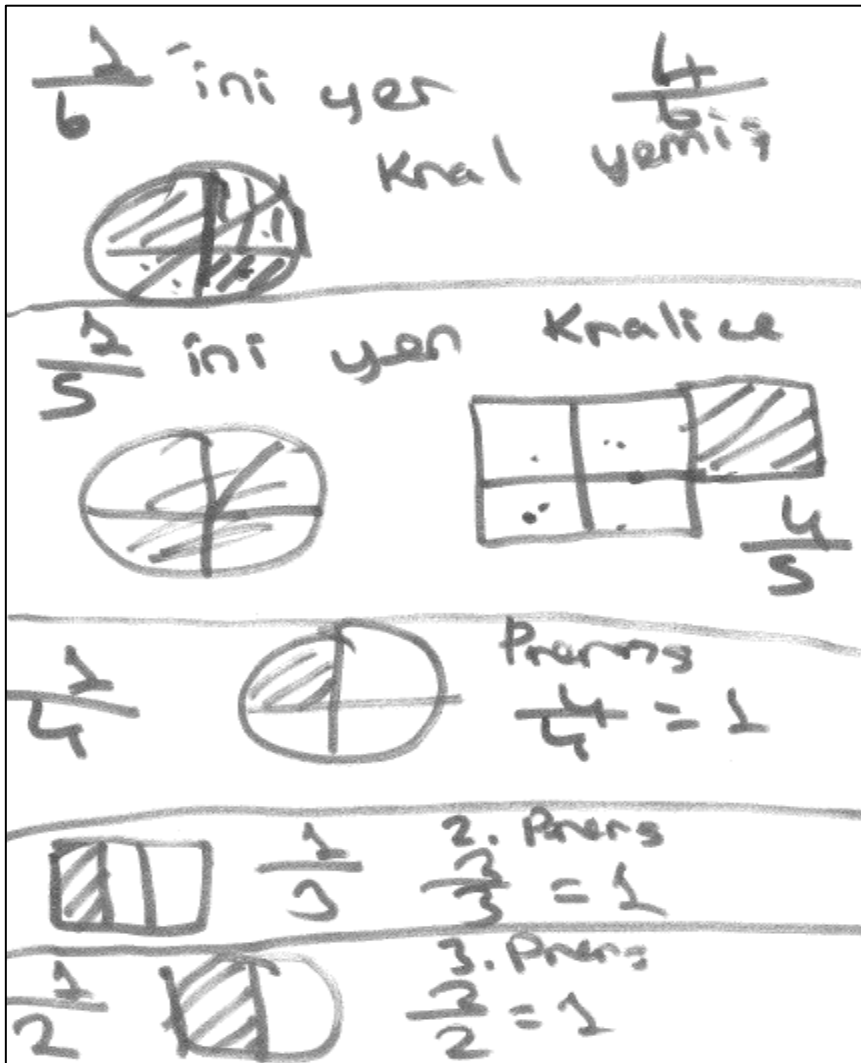 1/6 'ini yer 4/6
Kral yemiş
1/5 ini yer Kraliçe
4/5
1/4 Prens
4/4 = 1
1/3 2. Prens
3/3 = 1
3. Prens
1/2 2/2 = 1